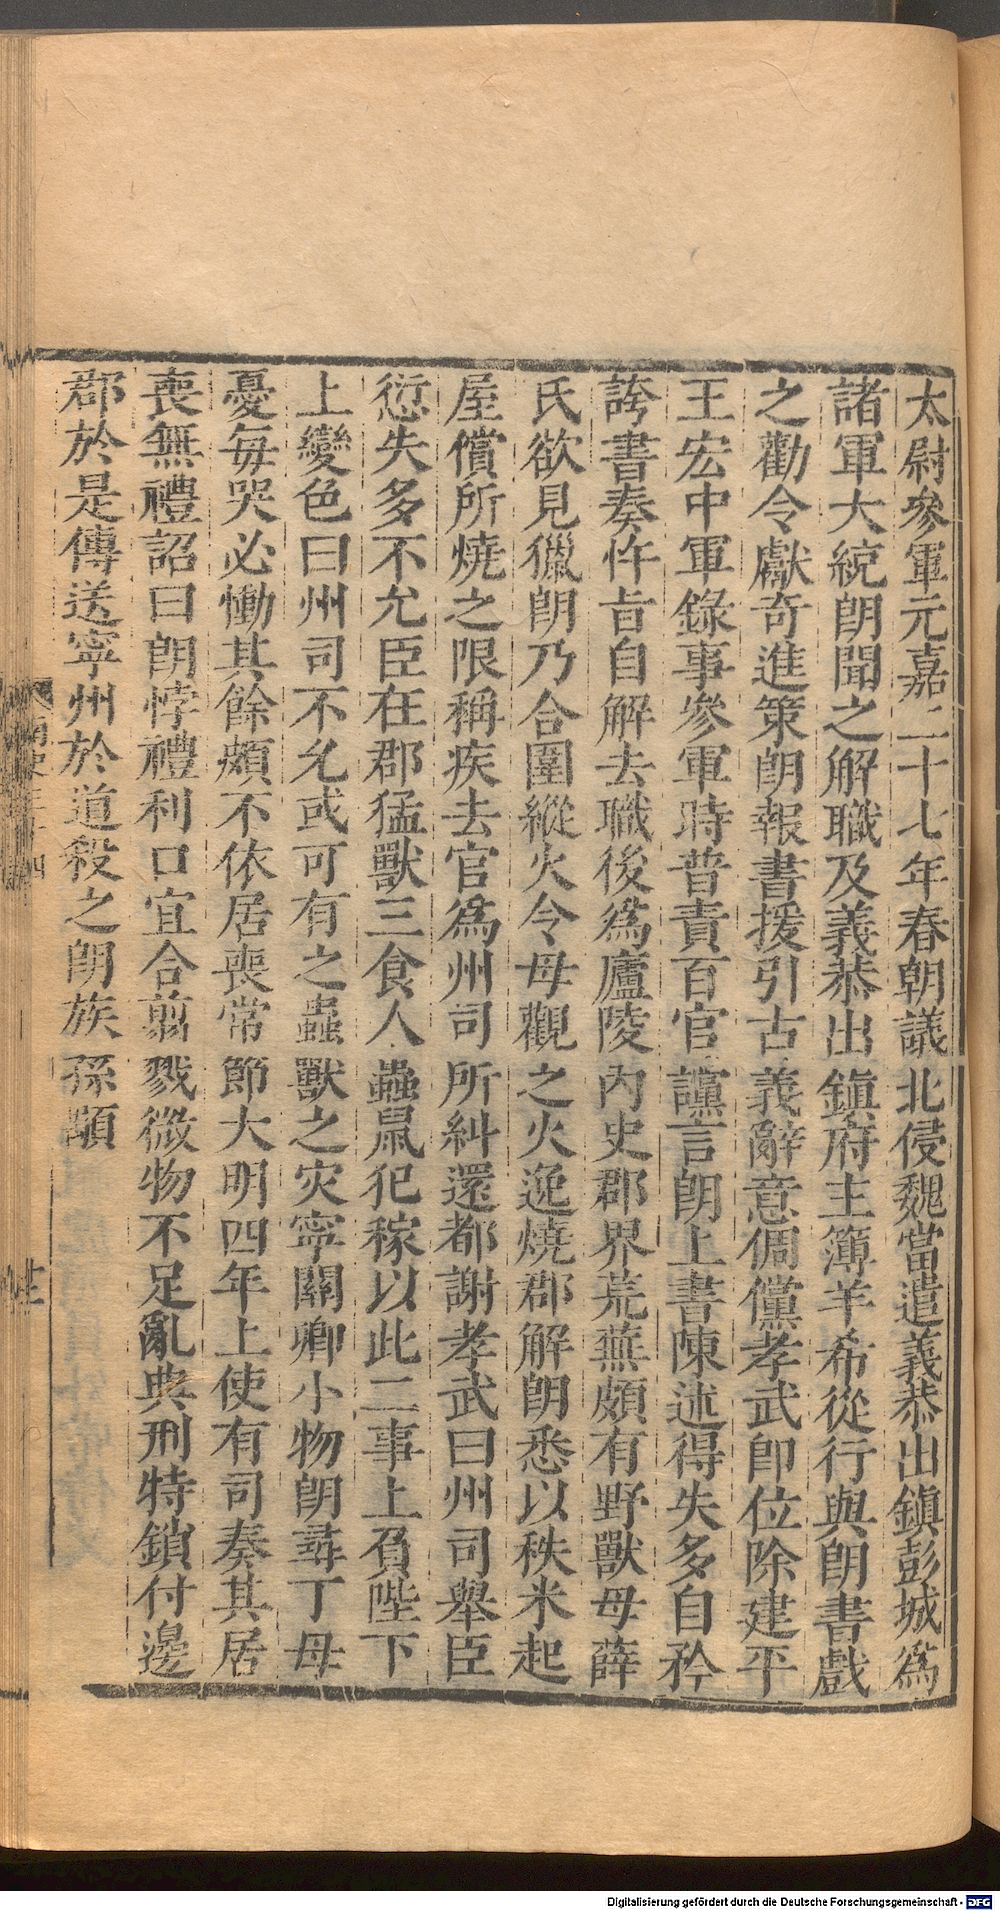 太尉參軍元嘉二十七年春朝議北侵魏當遣義恭出鎮彭城爲
諸軍大統朗聞之解職及義恭出鎮府主簿羊希從行與朗書戲
之勸令獻奇進策朗報書援引古義辭意倜儻孝武即位除建平
王宏中軍錄事參軍時普責百官讜言朗上書陳述得失多自矜
誇書奏忤旨自解去職後爲廬陵內史郡界荒蕪頗有野獸母薛
氏欲見獵朗乃合圍縱火令母觀之火逸燒郡解朗悉以秩米起
屋償所燒之限稱疾去官爲州司所糾還都謝孝武曰州司舉臣
愆失多不允臣在郡猛獸三食人蟲鼠犯稼以此二事上負陛下
上變色曰州司不允或可有之蟲獸之灾寧關卿小物朗尋丁母
憂每哭必慟其餘頗不依居喪常節大明四年上使有司奏其居
喪無禮詔曰朗悖禮利口宜合翦戮微物不足亂典刑特鎖付邊
郡於是傳送寧州於道殺之朗族孫顒
Digitalisierung gefördert durch die Deutsche Forschungsgemeinschaft - DFG